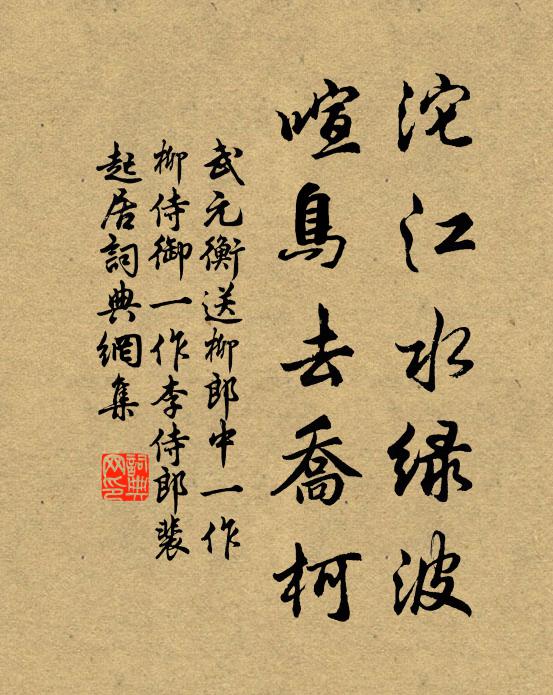 沱江水绿波
喧鳥去喬柯
武元衡送柳郎中一作
柳侍御一作李侍郎裴
起居詞典網集
詞典
网印